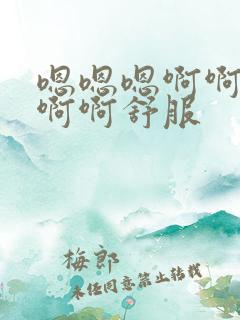 嗯嗯嗯啊啊
啊啊舒服
梅郎
未经同意禁止转载